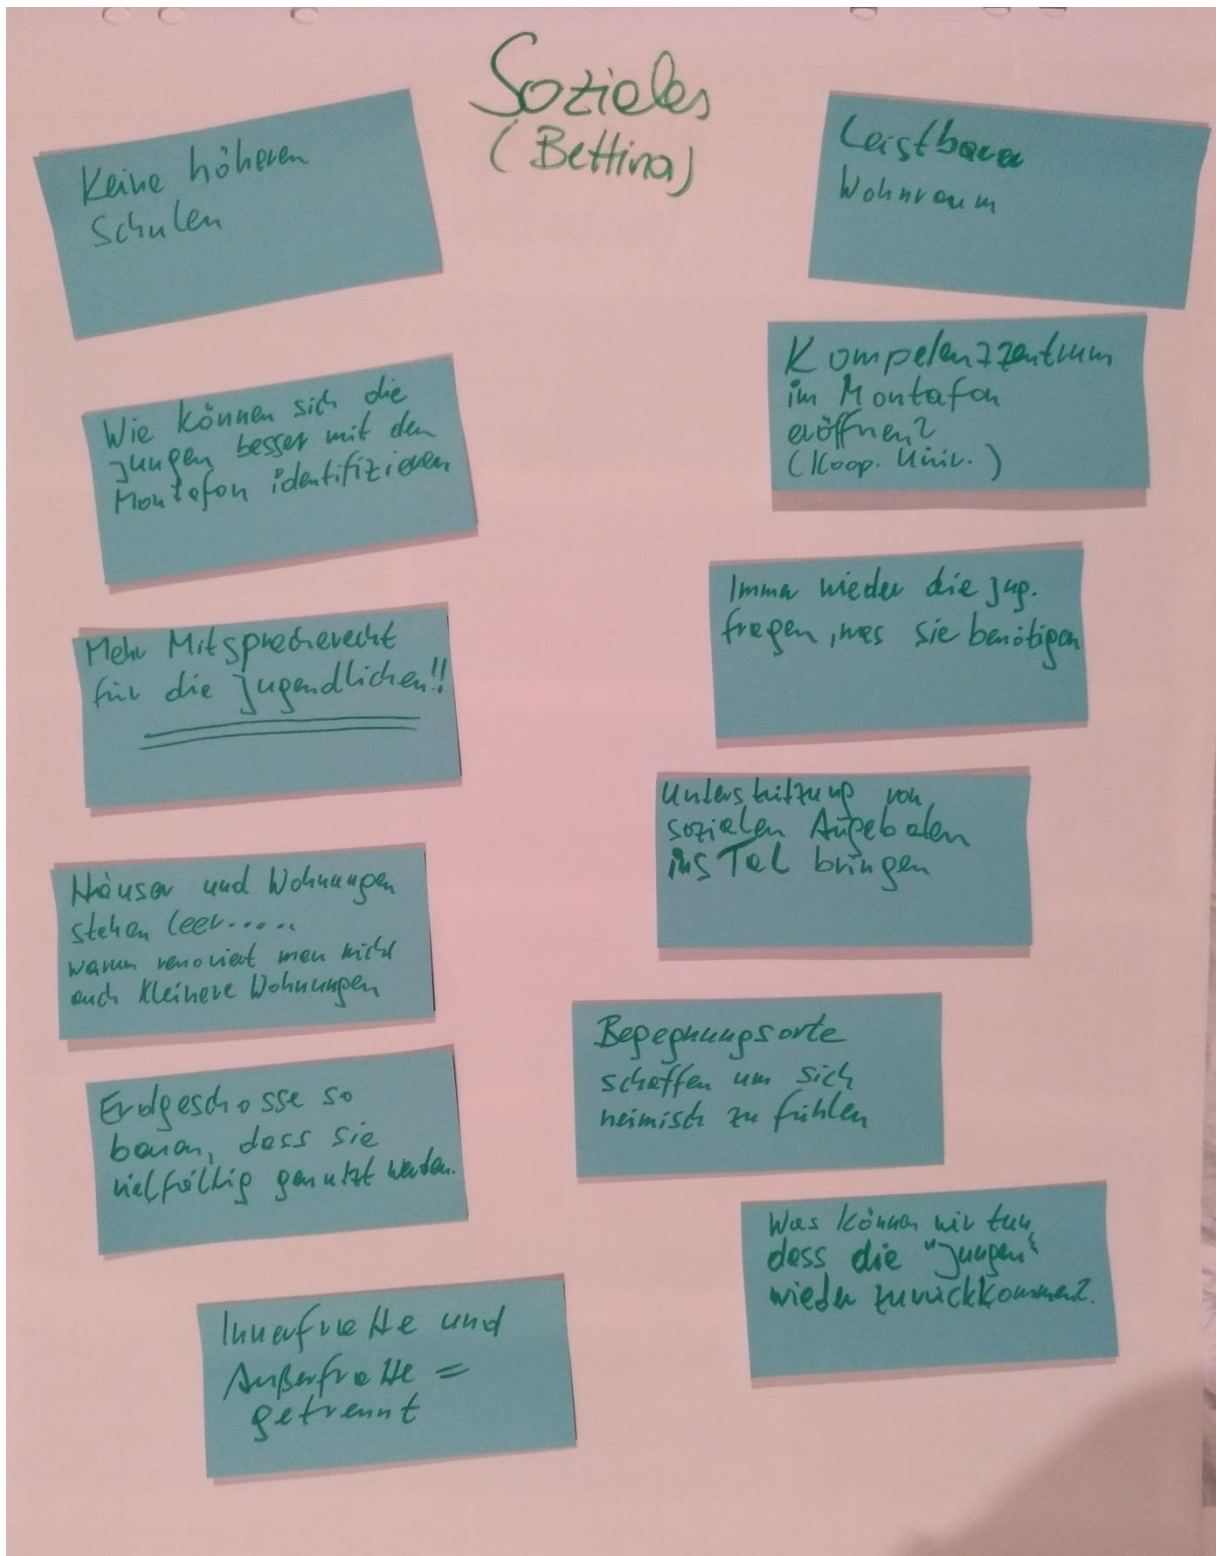 Soziales
(Bettina)
Keine höheren
Schulen
Wie können sich die
Jungen besser mit den
Montafon identifizieren
Mehr Mitspracherecht
für die Jugendlichen!!
Häuser und Wohnungen
stehen leer.....
warum renoviert man nicht
auch kleinere Wohnungen
Erdgeschosse so
bauen, dass sie
vielfältig genutzt werden.
Innerfratte und
Außerfratte =
getrennt
Leistbarer
Wohnraum
Kompetenzzentrum
im Montafon
eröffnen?
(Koop. Univ.)
Immer wieder die Jug.
fragen, was sie benötigen
Unterstützung von
sozialen Angeboten
ins Tal bringen
Begegnungsorte
schaffen um sich
heimisch zu fühlen
Was können wir tun,
dass die "Jungen"
wieder zurückkommen?